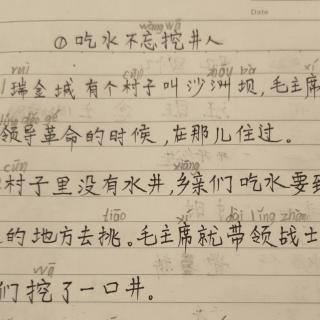 wàng wā
①吃水不忘挖井人
ruì cūn zhōu bà
瑞金城有个村子叫沙洲坝,毛主席
领导革命的时候,在那儿住过。
cūn xiāng
村子里没有水井,乡亲们吃水要到
tiāo xí dài lǐng zhàn
的地方去挑。毛主席就带领战士
wā
们挖了一口井。